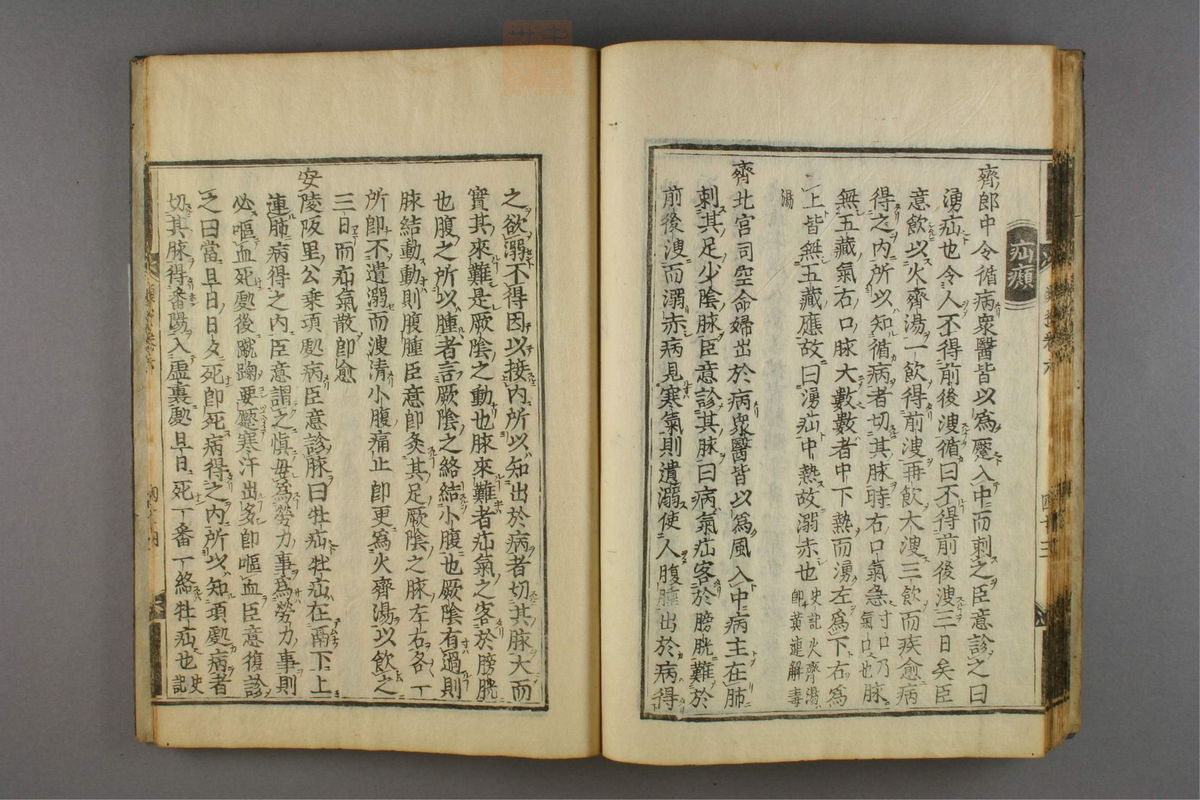 疝㿗
齊郎中令循病衆醫皆以為蹷入中而刺之臣意診之曰
湧疝也令人不得前後溲循曰不得前後溲三日矣臣
意飲以火齊湯一飲得前溲再飲大溲三飲而疾愈病
得之內所以知循病者切其脉時右口氣急寸口乃氣口也脉
無五藏氣右口脉大數數者中下熱而湧左為下右為
上皆無五藏應故曰湧疝中熱故溺赤也史記火齊湯即黃連解毒
湯
齊北宮司空命婦出於病衆醫皆以為風入中病主在肺
刺其足少陰脉臣意診其脉曰病氣疝客於膀胱難於
前後溲而溺赤病見寒氣則遺溺使人腹腫出於病得
之欲溺不得因以接內所以知出於病者切其脉大而
實其來難是厥陰之動也脉來難者疝氣之客於膀胱
也腹之所以腫者言厥陰之絡結小腹也厥陰有過則
脉結動動則腹腫臣意即灸其足厥陰之脉左右各一
所即不遺溺而溲清小腹痛止即更為火齊湯以飲之
三日而疝氣散即愈
安陵阪里公乘項處病臣意診脉曰牡疝牡疝在鬲下上
連肺病得之內臣意謂之慎毋為勞力事為勞力事則
必嘔血死處後蹴踘要蹷寒汗出多即嘔血臣意復診
之曰當旦日日夕死即死病得之內所以知項處病者
切其脉得番陽入虛裏處旦日死一番一絡牡疝也史記